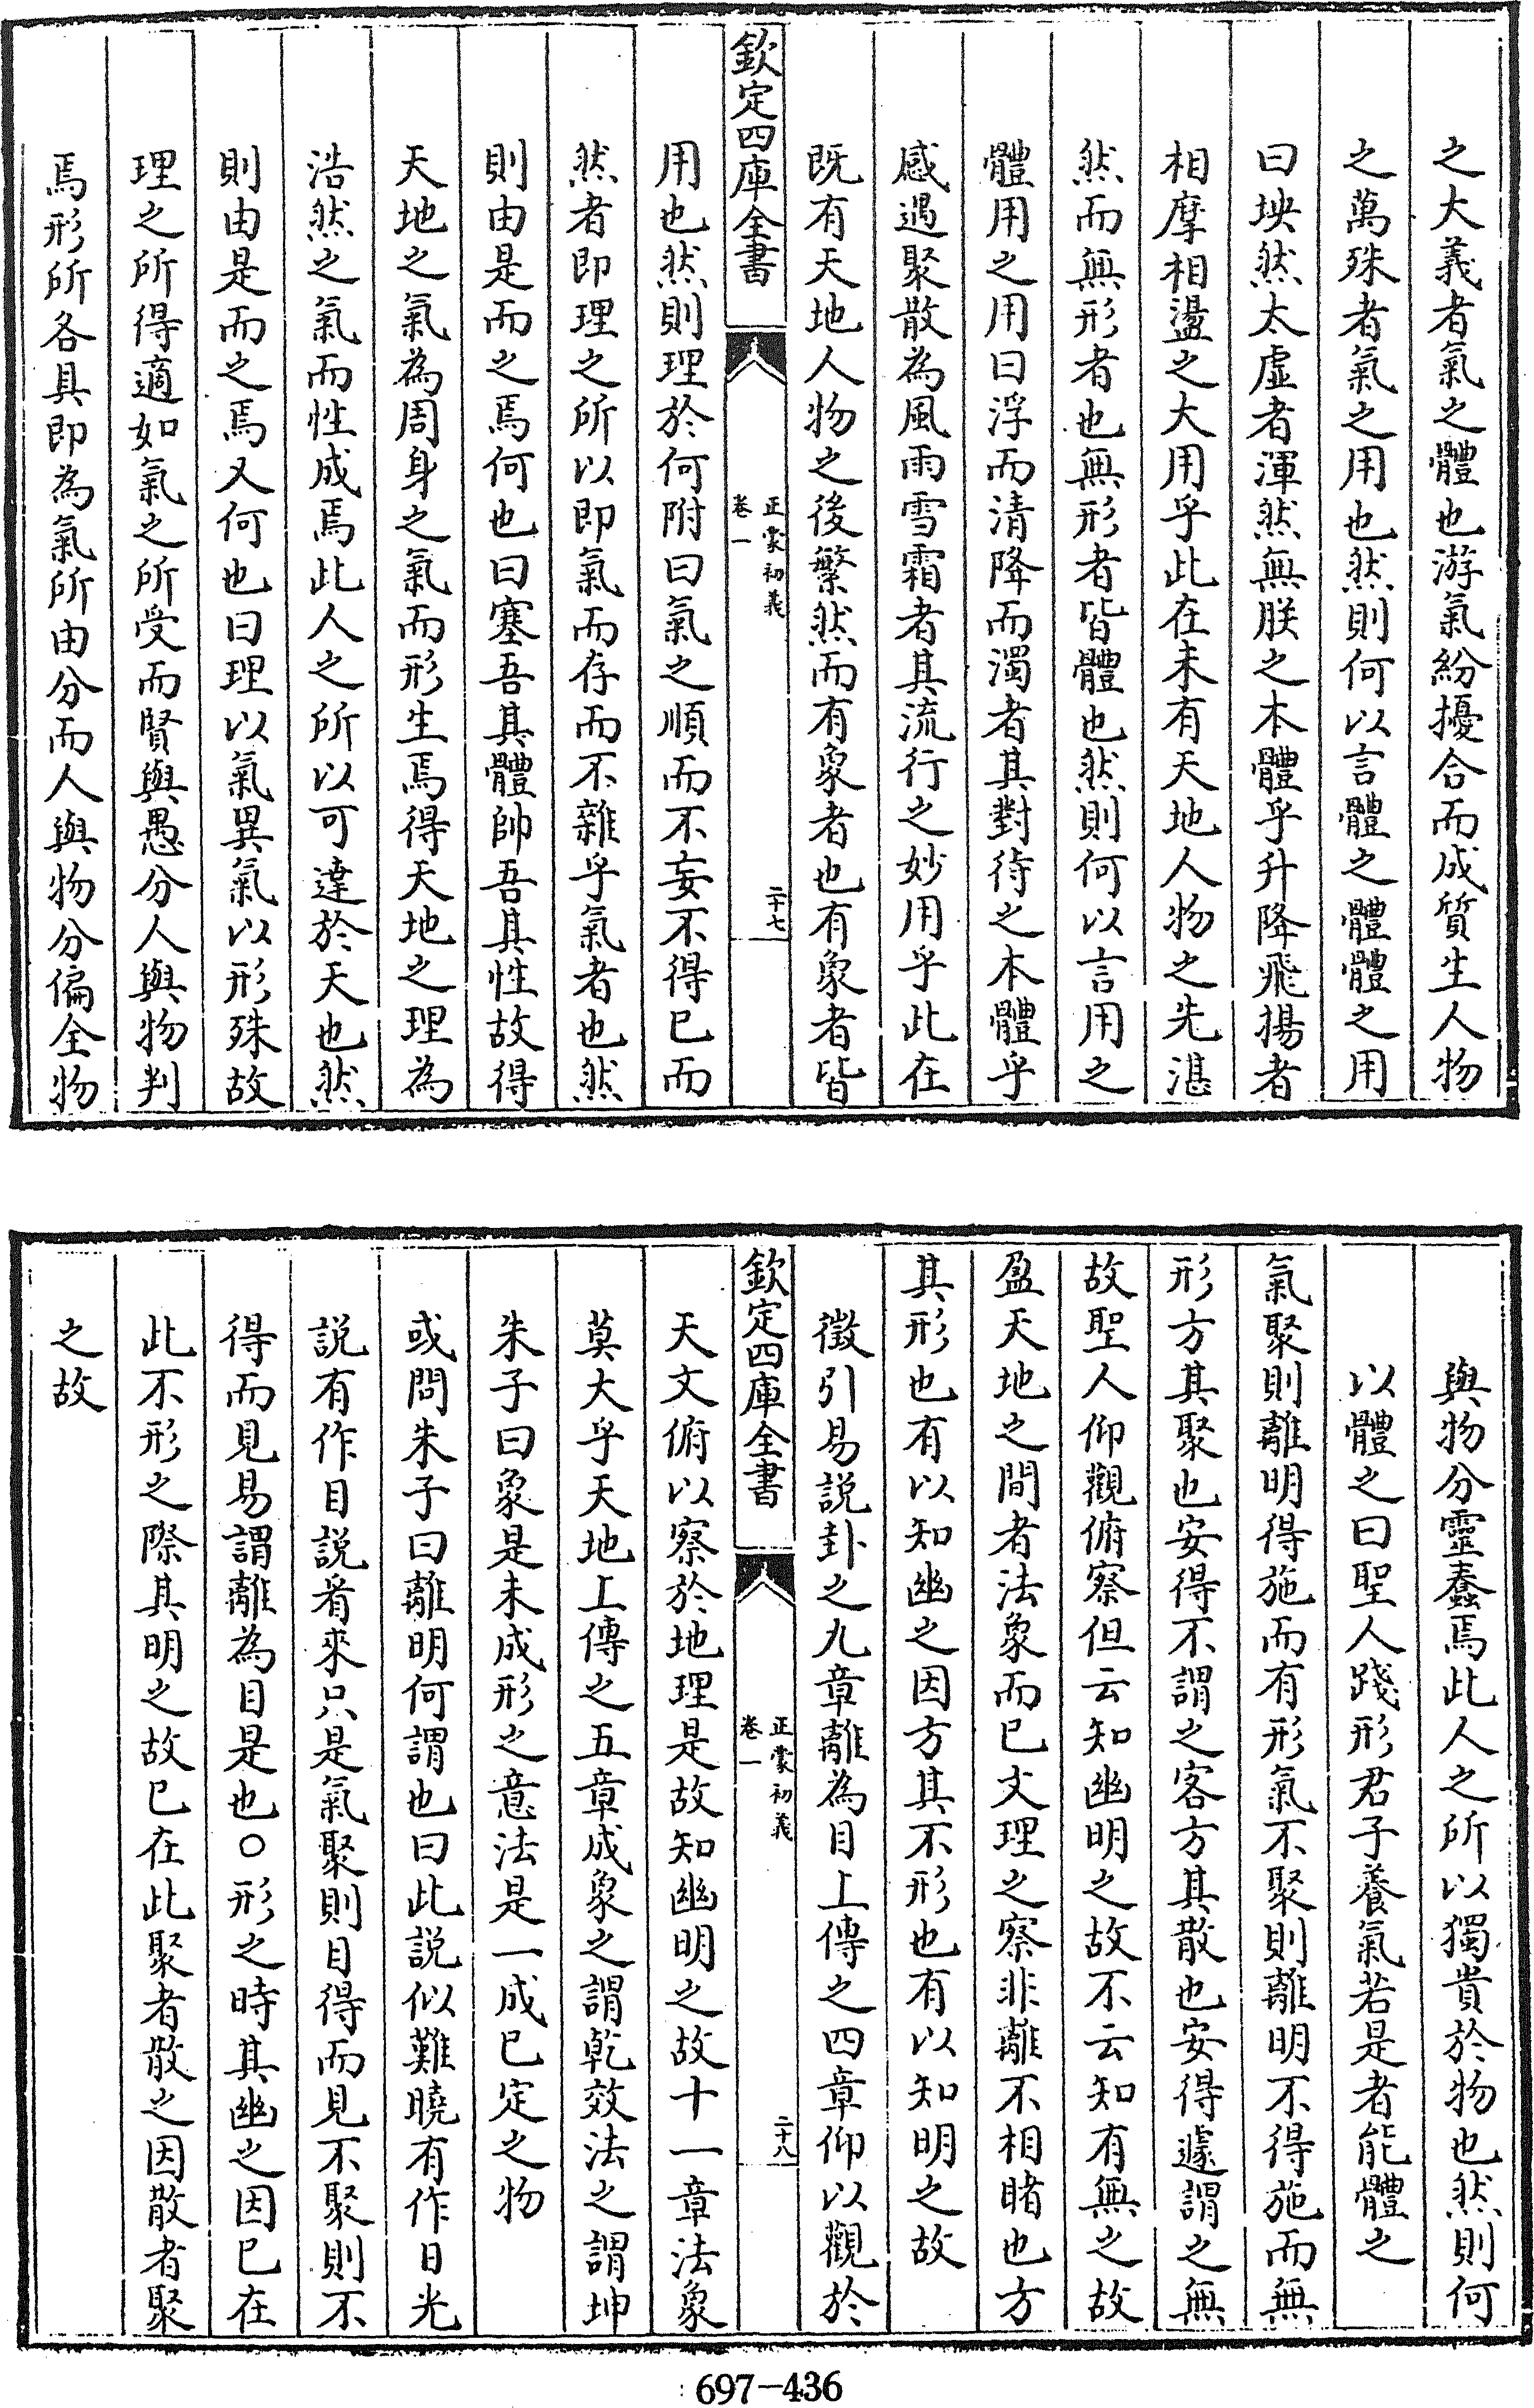 之大義者氣之體也游氣紛擾合而成質生人物
之萬殊者氣之用也然則何以言體之體體之用
曰坱然太虛者渾然無朕之本體乎升降飛揚者
相摩相盪之大用乎此在未有天地人物之先湛
然而無形者也無形者皆體也然則何以言用之
體用之用曰浮而清降而濁者其對待之本體乎
感遇聚散為風雨雪霜者其流行之妙用乎此在
既有天地人物之後繁然而有象者也有象者皆
欽定四庫全書
正蒙初義
卷一
二十七
用也然則理於何附曰氣之順而不妄不得已而
然者即理之所以即氣而存而不雜乎氣者也然
則由是而之焉何也曰塞吾其體帥吾其性故得
天地之氣為周身之氣而形生焉得天地之理為
浩然之氣而性成焉此人之所以可達於天也然
則由是而之焉又何也曰理以氣異氣以形殊故
理之所得適如氣之所受而賢與愚分人與物判
焉形所各具即為氣所由分而人與物分偏全物
與物分靈蠢焉此人之所以獨貴於物也然則何
以體之曰聖人踐形君子養氣若是者能體之
氣聚則離明得施而有形氣不聚則離明不得施而無
形方其聚也安得不謂之客方其散也安得遽謂之無
故聖人仰觀俯察但云知幽明之故不云知有無之故
盈天地之間者法象而已文理之察非離不相睹也方
其形也有以知幽之因方其不形也有以知明之故
徵引易說卦之九章離為目上傳之四章仰以觀於
欽定四庫全書
正蒙初義
卷一
二十八
天文俯以察於地理是故知幽明之故十一章法象
莫大乎天地上傳之五章成象之謂乾效法之謂坤
朱子曰象是未成形之意法是一成已定之物
或問朱子曰離明何謂也曰此說似難曉有作日光
說有作目說看來只是氣聚則目得而見不聚則不
得而見易謂離為目是也○形之時其幽之因已在
此不形之際其明之故已在此聚者散之因散者聚
之故
697-436